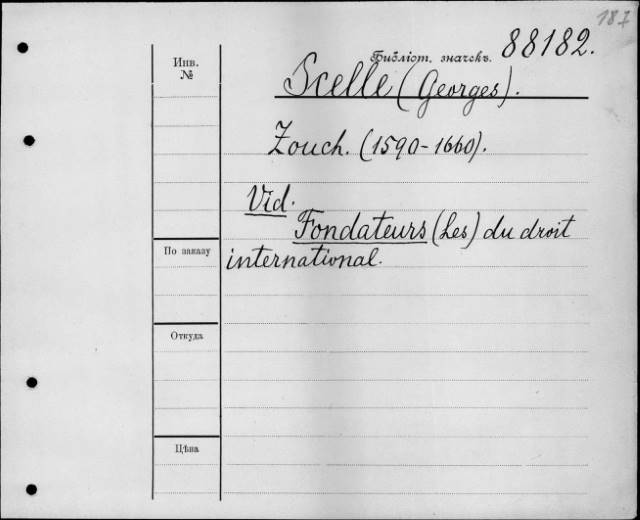 187
88182.
Инв. №
Библіот. значекъ.
Scelle (Georges).
Zouch. (1590-1660).
Vid.
Fondateurs (Les) du droit
international.
По заказу
Откуда
Цѣна